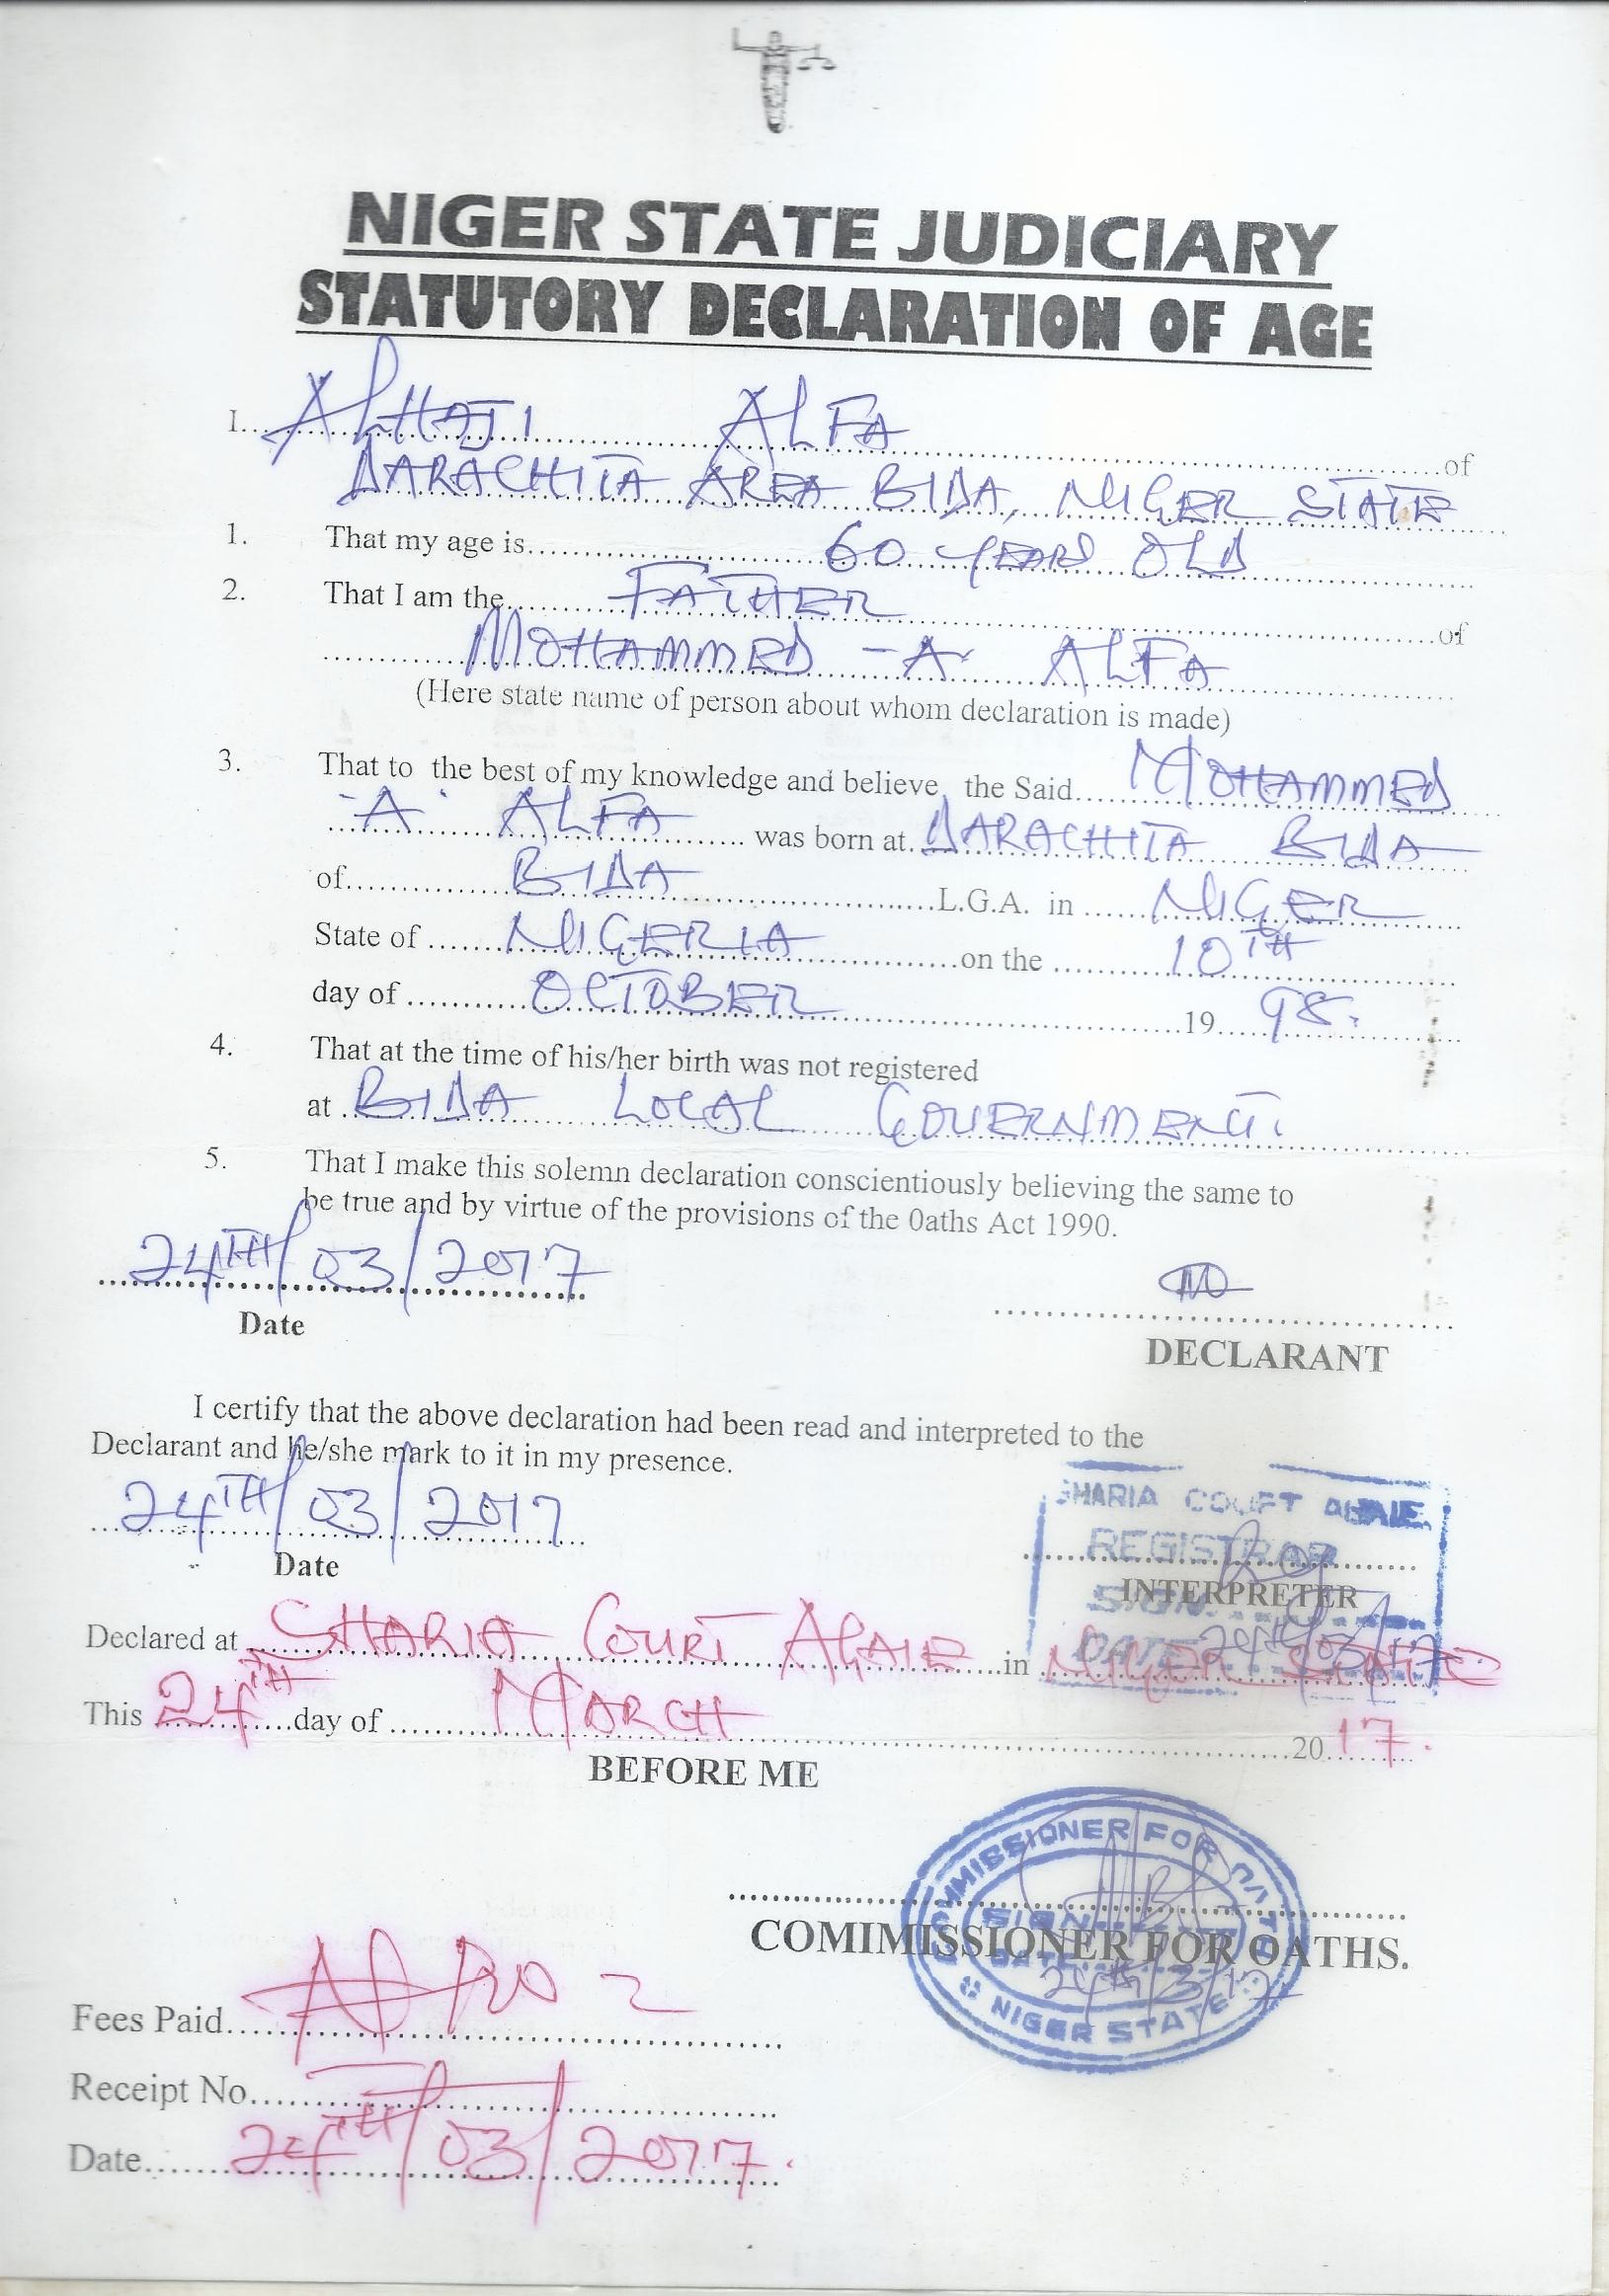 NIGER STATE JUDICIARY
STATUTORY DECLARATION OF AGE
I... ALHAJI ALFA ...of
DARACHITA AREA BIDA, NIGER STATE
1. That my age is... 60 YEARS OLD
2. That I am the... FATHER ...of
MOHAMMED -A- ALFA
(Here state name of person about whom declaration is made)
3. That to the best of my knowledge and believe, the Said... MOHAMMED
-A- ALFA ... was born at. DARACHITA BIDA
of... BIDA ...L.G.A. in ... NIGER
State of ... NIGERIA ...on the ... 10TH
day of ... OCTOBER ...19... 98.
4. That at the time of his/her birth was not registered
at ... BIDA LOCAL GOVERNMENT.
5. That I make this solemn declaration conscientiously believing the same to
be true and by virtue of the provisions of the 0aths Act 1990.
24TH/03/2017
Date
DECLARANT
I certify that the above declaration had been read and interpreted to the
Declarant and he/she mark to it in my presence.
24TH/03/2017
Date
SHARIA COURT AGAIE
REGISTRAR
INTERPRETER
SIGN
DATE 24th/03/17
Declared at ... SHARIA COURT AGAIE ...in ... NIGER STATE
This 24TH ...day of ... MARCH ...20 17.
BEFORE ME
COMMISSIONER FOR OATH
SIGN
COMIMISSIONER FOR OATHS.
DATE
24th/3/17
NIGER STATE
Fees Paid...
Receipt No...
Date... 24TH/03/2017.